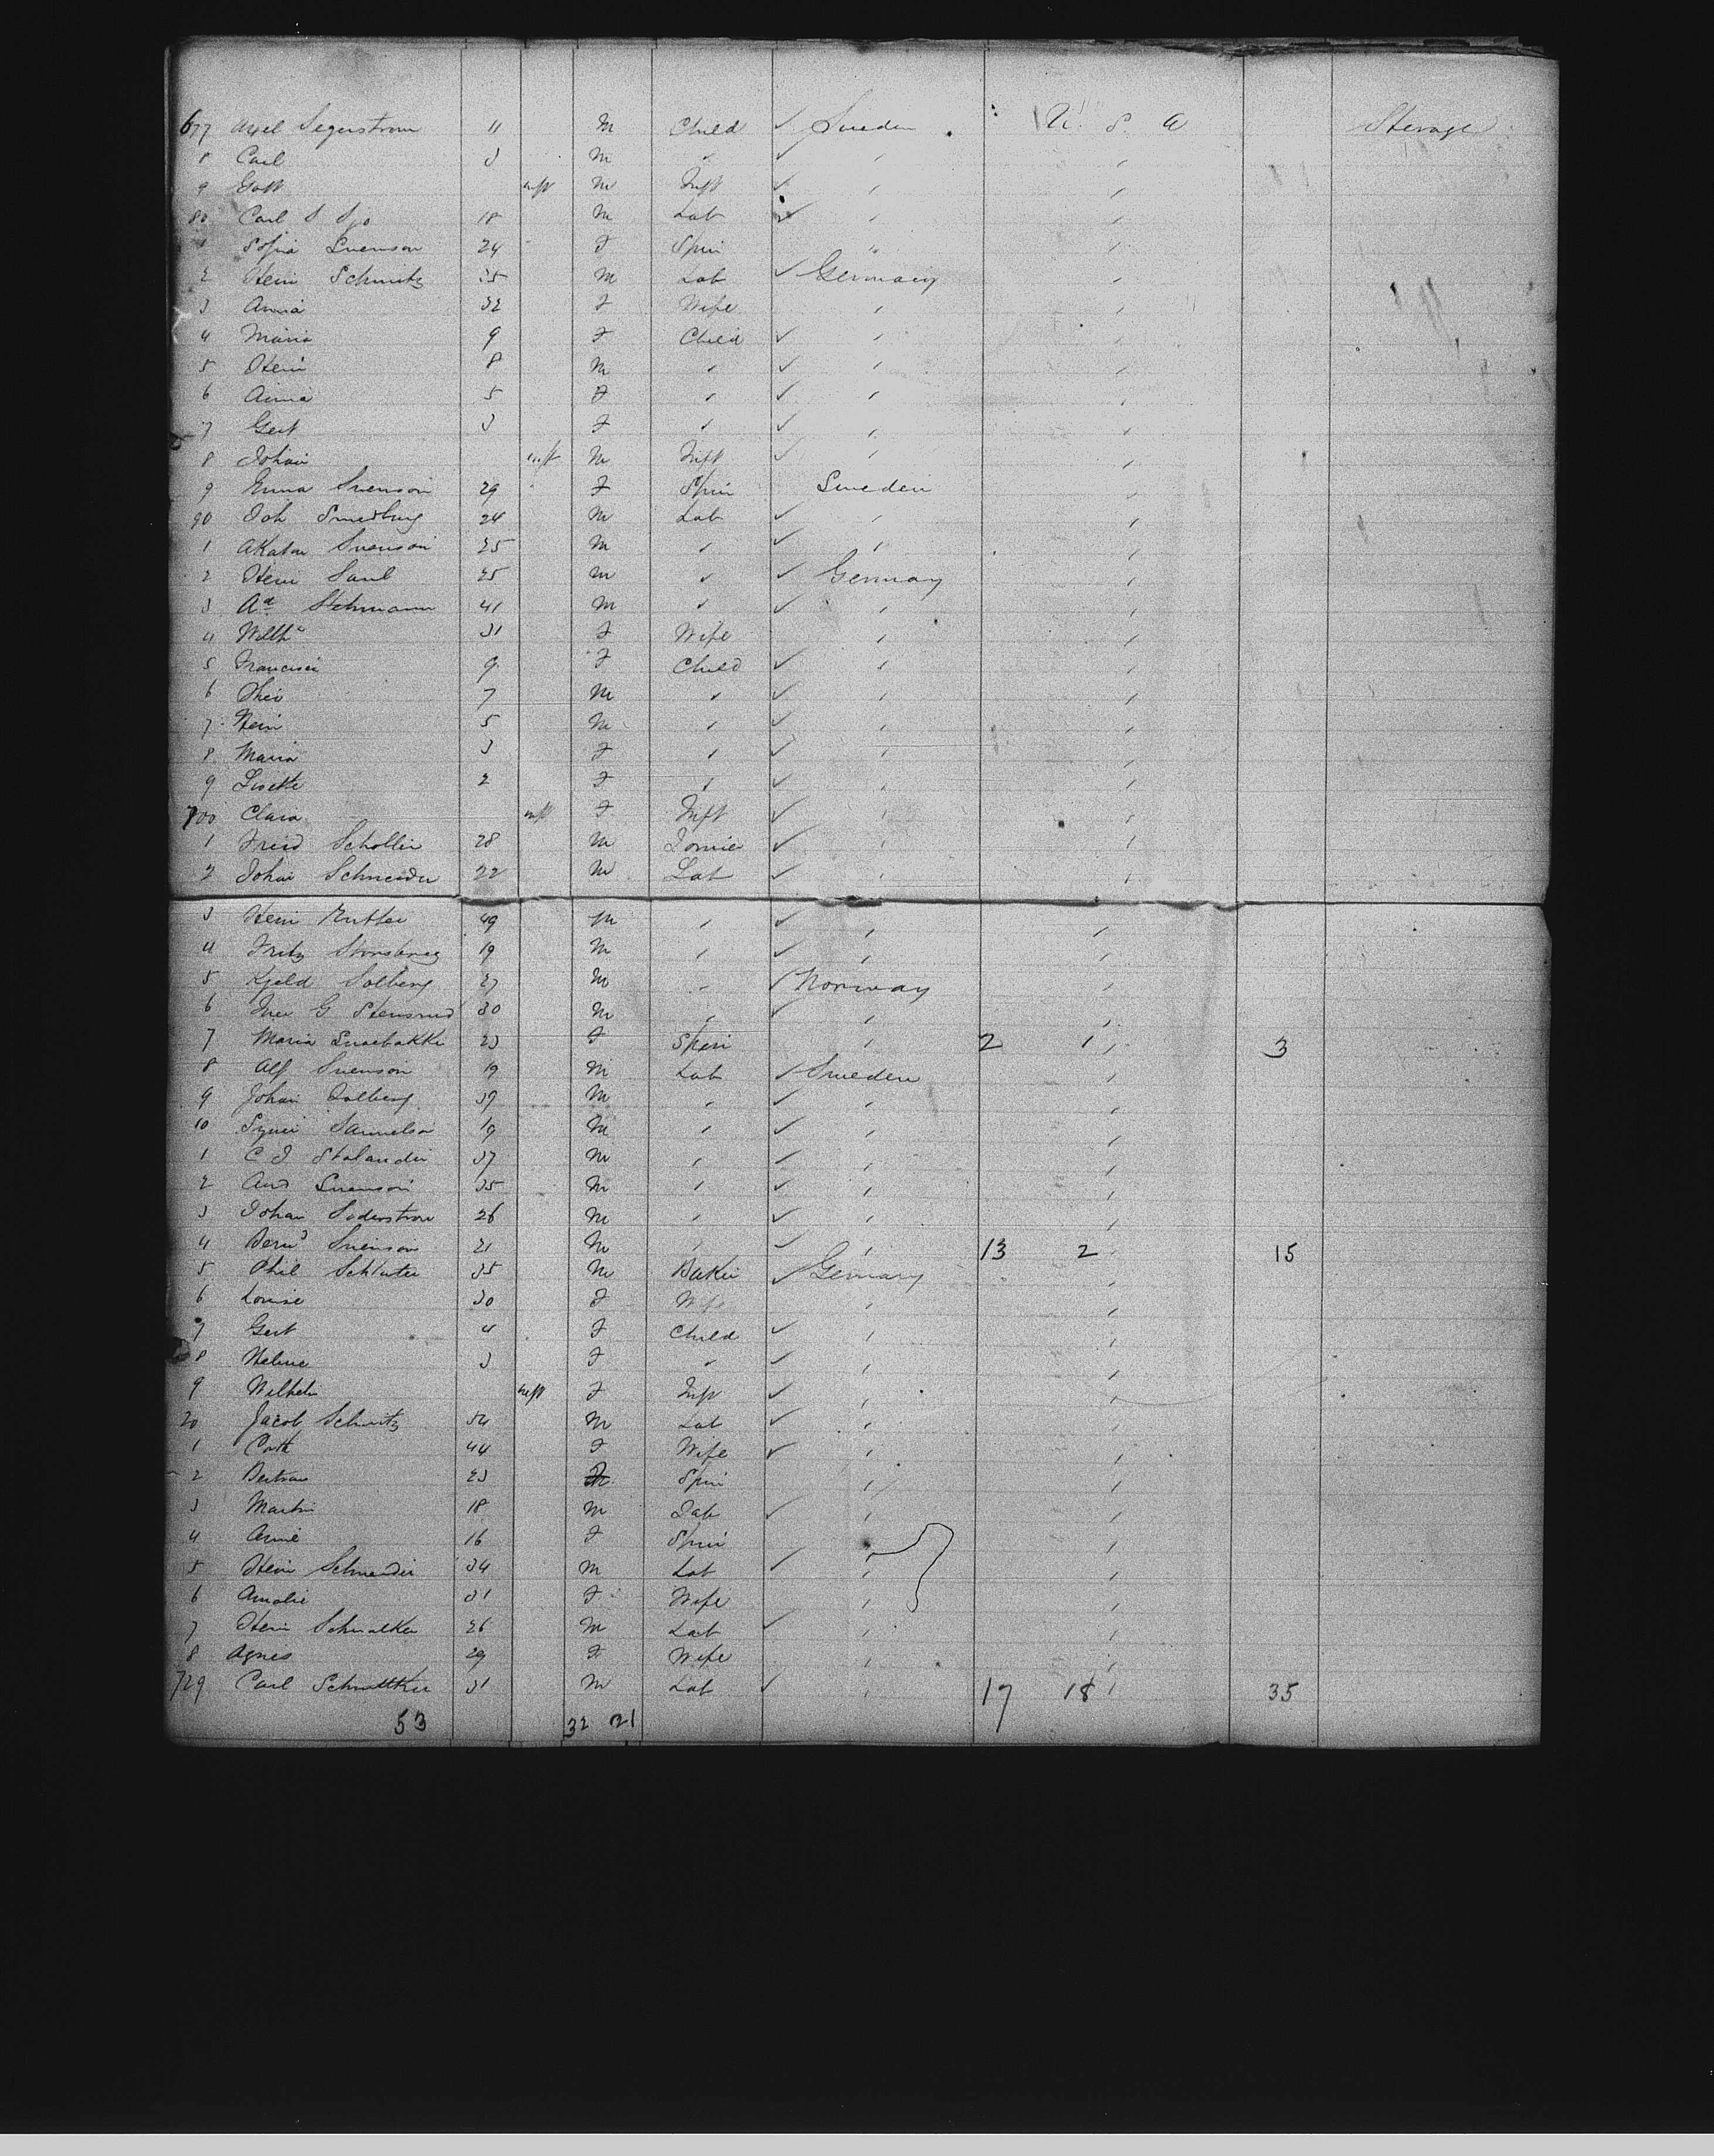 677 Axel Segerstrom 11 M Child ✓ Sweden U. S. A Sterage
8 Carl 3 M " ✓ "
9 Gott inft M Inft ✓ "
80 Carl S Sjo 18 M Lab ✓ "
1 Sofia Svenson 24 F Spin "
2 Hein Schmitz 35 M Lab ✓ Germany
3 Anna 32 F Wife "
4 Maria 9 F Child ✓ "
5 Hein 8 M " ✓ "
6 Anna 5 F " ✓ "
7 Gert 3 F " ✓ "
8 Johan inft M Inft ✓ "
9 Emma Svenson 29 F Spin Sweden
90 Joh Smedburg 24 M Lab ✓ "
1 Svenson 25 M " ✓ "
2 Hein Saul 25 M " ✓ Germany
3 Ad Stehmann 41 M " ✓ "
4 Wilh 31 F Wife "
5 9 F Child ✓ "
6 Theo 7 M " ✓ "
7 Hein 5 M " ✓ "
8 Maria 3 F " ✓ "
9 Lisette 2 F " ✓ "
700 Clara inft F Inft ✓ "
1 Fried Schollin 28 M ✓ "
2 Johan Schneider 22 M Lab ✓ "
3 Hein 49 M " ✓ "
4 Fritz 19 M " ✓ "
5 Kjeld Solberg 27 M " ✓ Norway
6 G Stensrud 30 M " ✓ "
7 Maria 23 F Spin " 2 1 3
8 Alf Svenson 19 M Lab ✓ Sweden
9 Johan 39 M " ✓ "
10 Samuelson 19 M " ✓ "
1 C J Stalander 37 M " ✓ "
2 And Svenson 35 M " ✓ "
3 Johan Soderstrom 26 M " ✓ "
4 Bernd Svenson 21 M " ✓ " 13 2 15
5 Phil Schluter 35 M Baker ✓ Germany
6 Louise 30 F Wife "
7 Gert 4 F Child ✓ "
8 Helene 3 F " ✓ "
9 Wilhelm inft F Inft ✓ "
20 Jacob Schmitz 54 M Lab ✓ "
1 Cath 44 F Wife ✓ "
2 23 F Spin "
3 Martin 18 M Lab ✓ "
4 Annie 16 F Spin "
5 Hein Schneider 34 M Lab ✓ "
6 Amalie 31 F Wife "
7 Hein 26 M Lab ✓ "
8 Agnes 29 F Wife "
729 Carl 31 M Lab ✓ " 17 18 35
53 32 21